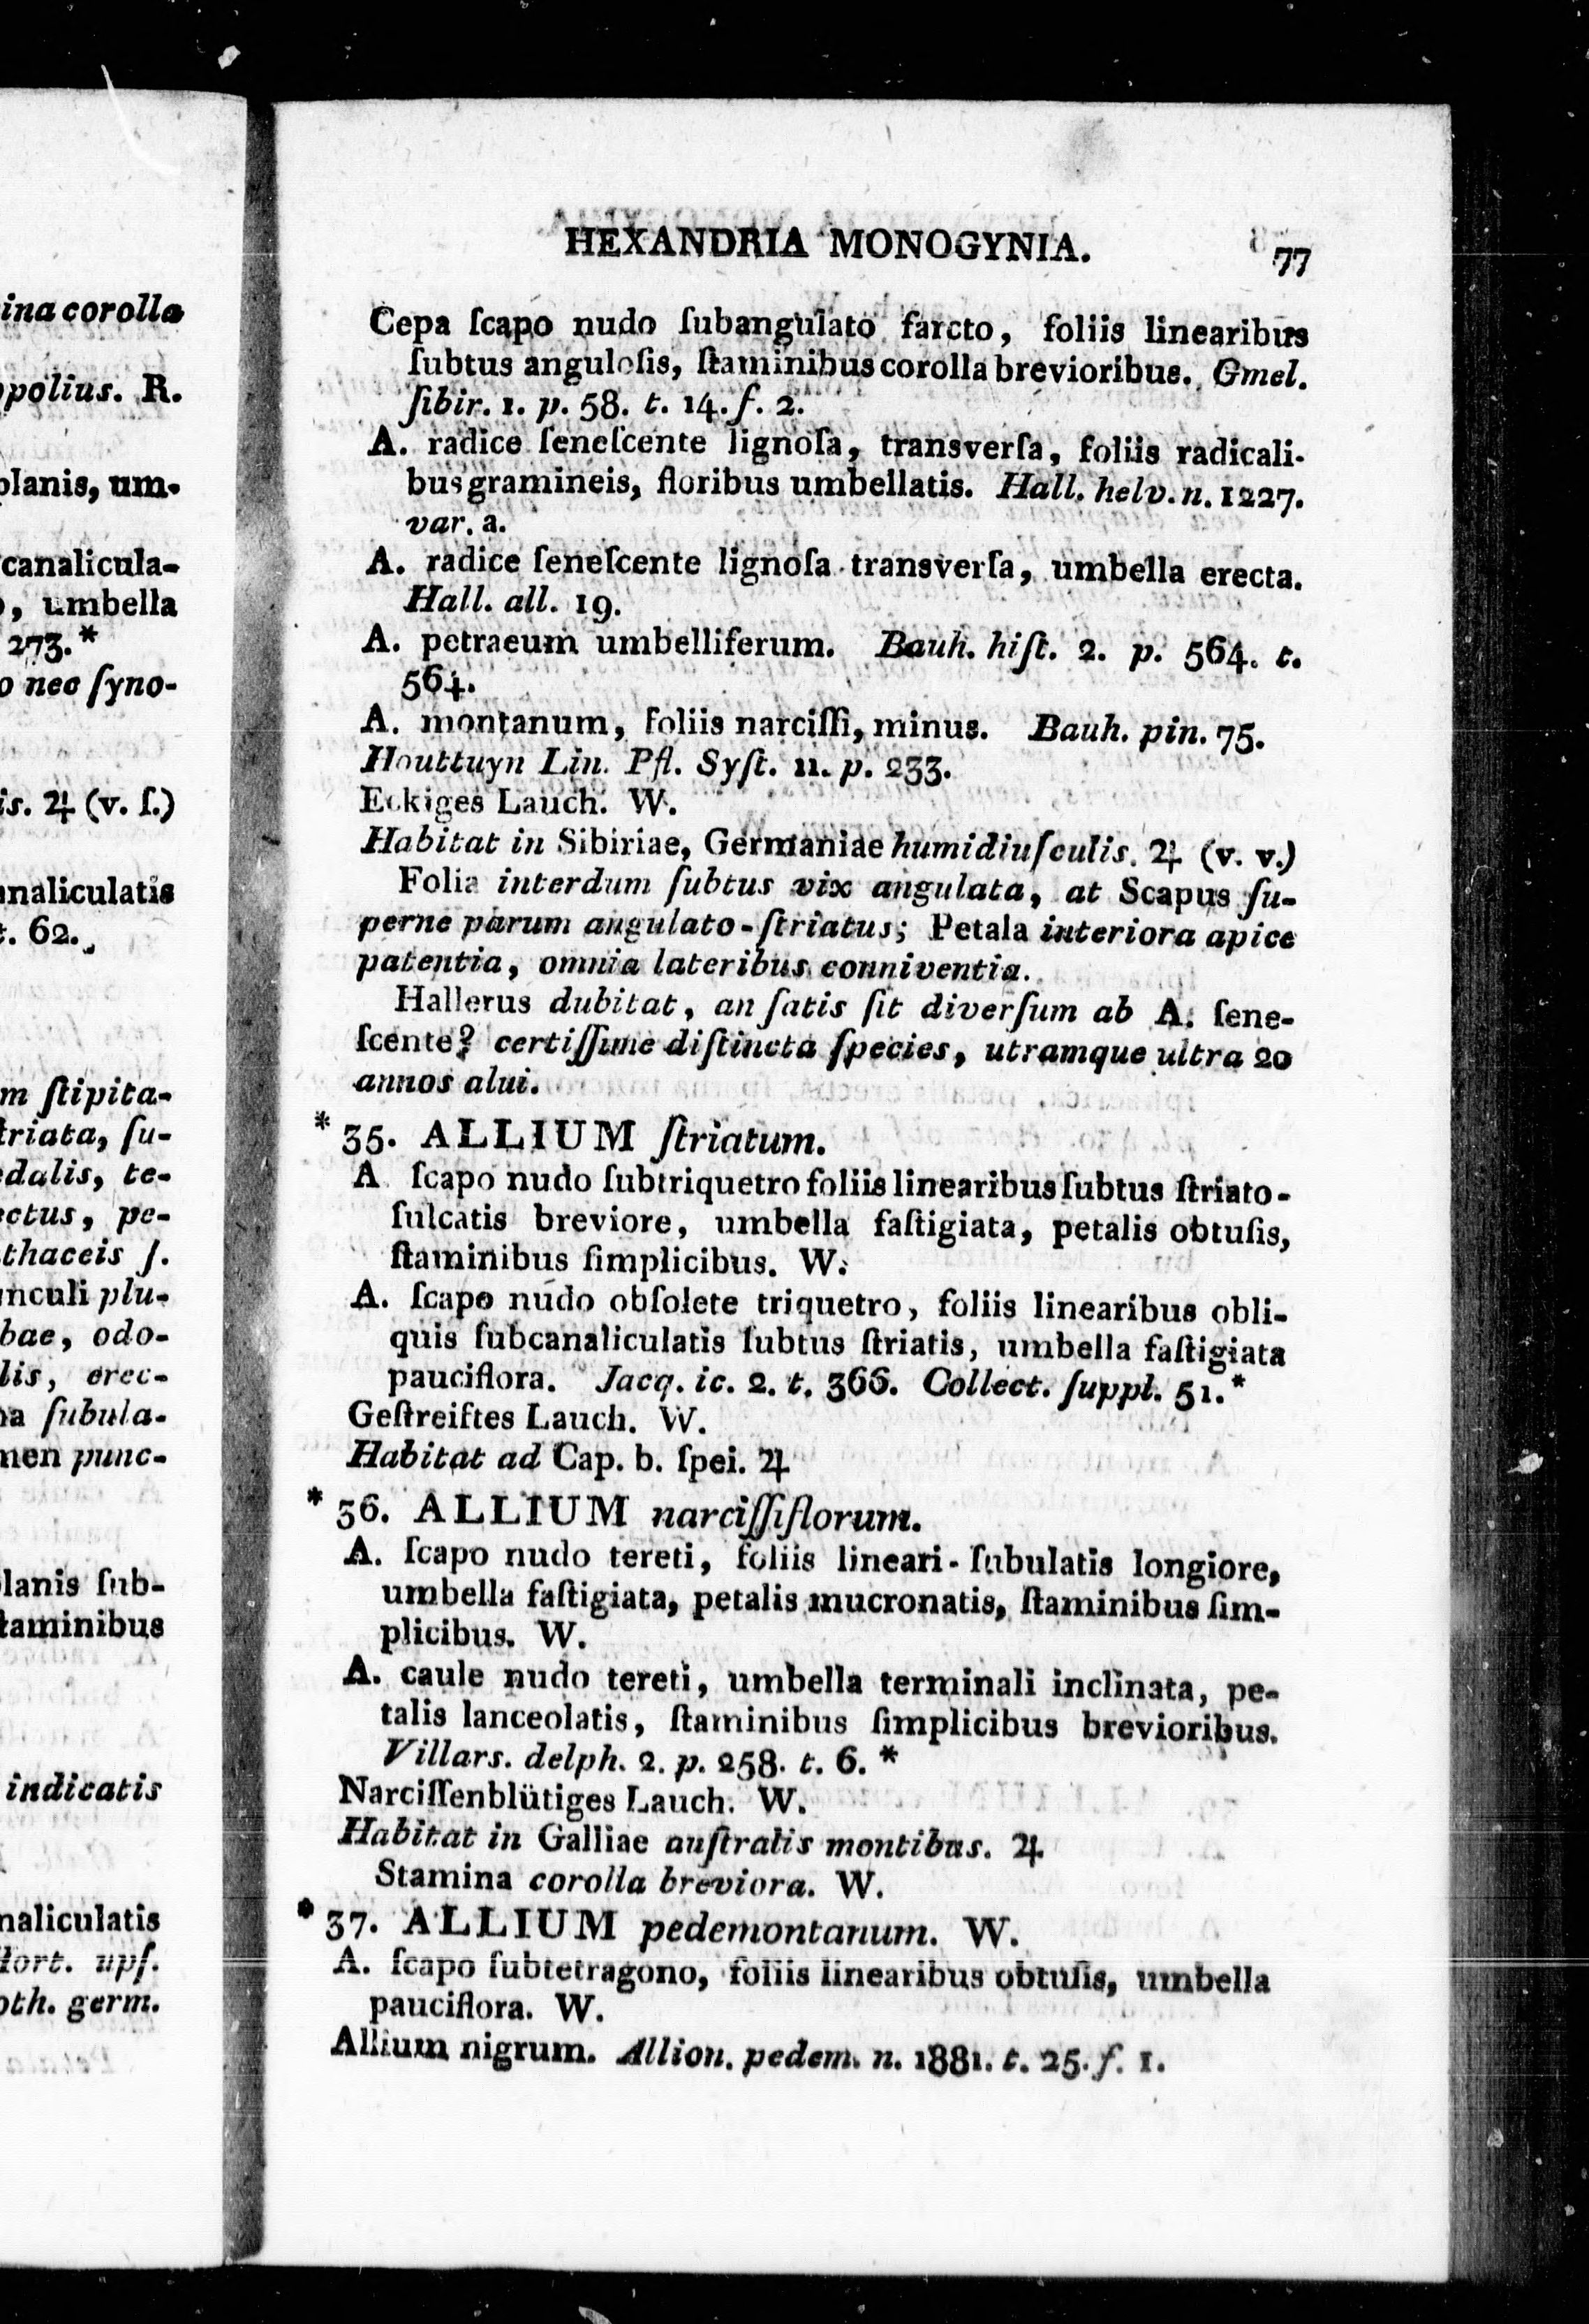 ina corolla
polius. R.
planis, um-
canalicula-
, umbella
273.*
o nec ſyno-
is. ♃ (v. ſ.)
naliculatis
t. 62.
m ſtipita-
triata, ſu-
edalis, te-
ectus, pe-
thaceis ſ.
unculi plu-
bae, odo-
lis, erec-
na ſubula-
men punc-
lanis ſub-
taminibus
indicatis
naliculatis
Hort. upſ.
oth. germ.
HEXANDRIA MONOGYNIA. 77
Cepa ſcapo nudo ſubangulato farcto, foliis linearibus
ſubtus anguloſis, ſtaminibus corolla brevioribus. Gmel.
ſibir. 1. p. 58. t. 14. f. 2.
A. radice ſeneſcente lignoſa, transverſa, foliis radicali-
bus gramineis, floribus umbellatis. Hall. helv. n. 1227.
var. a.
A. radice ſeneſcente lignoſa transverſa, umbella erecta.
Hall. all. 19.
A. petraeum umbelliferum. Bauh. hiſt. 2. p. 564. t.
564.
A. montanum, foliis narciſſi, minus. Bauh. pin. 75.
Houttuyn Lin. Pfl. Syſt. 11. p. 233.
Eckiges Lauch. W.
Habitat in Sibiriae, Germaniae humidiuſculis. ♃ (v. v.)
Folia interdum ſubtus vix angulata, at Scapus ſu-
perne parum angulato-ſtriatus; Petala interiora apice
patentia, omnia lateribus conniventia.
Hallerus dubitat, an ſatis ſit diverſum ab A. ſene-
ſcente? certiſſime diſtincta ſpecies, utramque ultra 20
annos alui.
* 35. ALLIUM ſtriatum.
A ſcapo nudo ſubtriquetro foliis linearibus ſubtus ſtriato-
ſulcatis breviore, umbella faſtigiata, petalis obtuſis,
ſtaminibus ſimplicibus. W.
A. ſcapo nudo obſolete triquetro, foliis linearibus obli-
quis ſubcanaliculatis ſubtus ſtriatis, umbella faſtigiata
pauciflora. Jacq. ic. 2. t. 366. Collect. ſuppl. 51.*
Geſtreiftes Lauch. W.
Habitat ad Cap. b. ſpei. ♃
* 36. ALLIUM narciſſiflorum.
A. ſcapo nudo tereti, foliis lineari-ſubulatis longiore,
umbella faſtigiata, petalis mucronatis, ſtaminibus ſim-
plicibus. W.
A. caule nudo tereti, umbella terminali inclinata, pe-
talis lanceolatis, ſtaminibus ſimplicibus brevioribus.
Villars. delph. 2. p. 258. t. 6. *
Narciſſenblütiges Lauch. W.
Habitat in Galliae auſtralis montibus. ♃
Stamina corolla breviora. W.
* 37. ALLIUM pedemontanum. W.
A. ſcapo ſubtetragono, foliis linearibus obtuſis, umbella
pauciflora. W.
Allium nigrum. Allion. pedem. n. 1881. t. 25. f. 1.